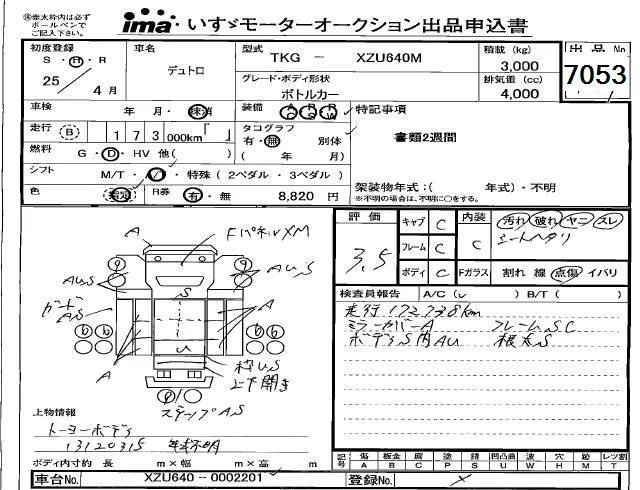 ※赤太枠内は必ず
ボールペンで
ご記入下さい。
ima いすゞモーターオークション出品申込書
初度登録
S・H・R
25 / 4月
車名
デュトロ
型式
TKG - XZU640M
グレード・ボディ形状
ボトルカー
積載 (kg)
3,000
排気量 (cc)
4,000
出品No.
7053
車検 年 月・抹消
装備 AC PS PW
特記事項
走行 B 173 000km「 」
タコグラフ
有・無 別体
( 年 月)
書類2週間
燃料 G・D・HV 他( )
シフト M/T・ ・特殊 (2ペダル・3ペダル)
架装物年式:( 年式)・不明
※不明の場合は、不明に○をする。
色 指定 R券 有・無 8,820 円
評価
3.5
キャブ C
フレーム C
ボディ C
内装 C
汚れ 破れ ヤニ スレ
シートヘタリ
Fガラス 割れ 線 点傷 イバリ
検査員報告 A/C( ) B/T( )
走行172738km
ミラーカバーA フレームSC
ボディS内AU 根太S
A
FパネルXM
AU,S
AU,S
ガード
AS
A
A
S
枠U,S
上下開き
ステップAS
上物情報
トーヨーボディ
13120315 年式不明
ボディ内寸約 長 m×幅 m×高 m
記号
傷 A
板金 B
腐 C
塗 P
錆 S
凹凸曲 U
波 W
穴 H
跡 M
レツ割 T
車台No. XZU640-0002201
登録No.